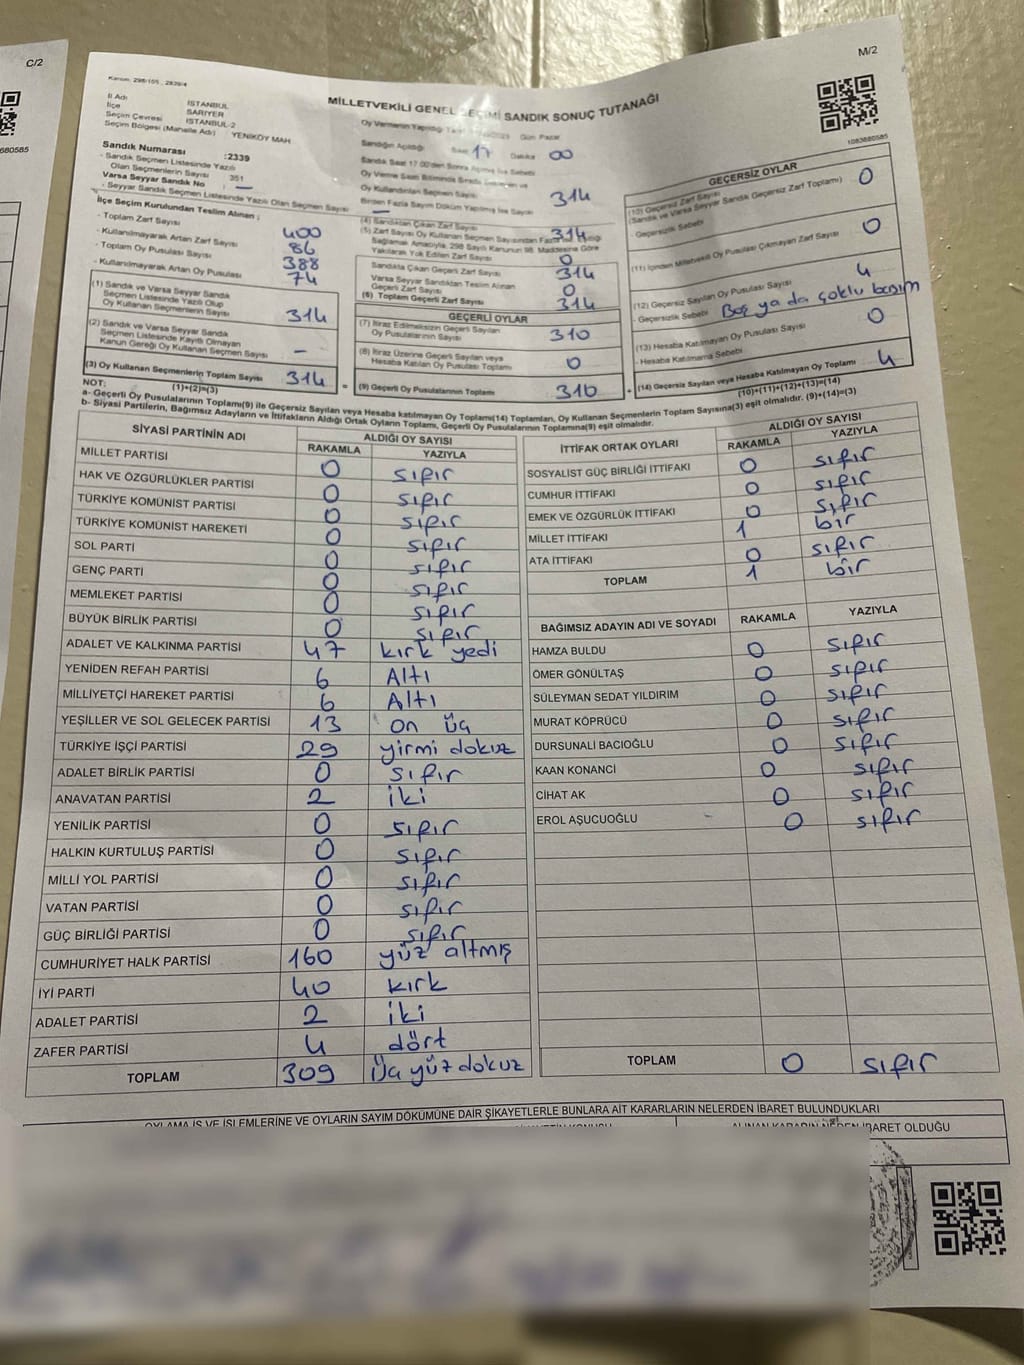 C/2
M/2
680585
Kanun: 298/105 , 2839/4
MİLLETVEKİLİ GENEL SEÇİMİ SANDIK SONUÇ TUTANAĞI
1083680585
İl Adı İSTANBUL
İlçe SARIYER
Seçim Çevresi İSTANBUL-2
Seçim Bölgesi (Mahalle Adı) YENİKÖY MAH
Sandık Numarası :2339
- Sandık Seçmen Listesinde Yazılı
Olan Seçmenlerin Sayısı 351
Varsa Seyyar Sandık No : —
- Seyyar Sandık Seçmen Listesinde Yazılı Olan Seçmen Sayısı
İlçe Seçim Kurulundan Teslim Alınan ;
- Toplam Zarf Sayısı 400
- Kullanılmayarak Artan Zarf Sayısı 86
- Toplam Oy Pusulası Sayısı 388
- Kullanılmayarak Artan Oy Pusulası 74
(1) Sandık ve Varsa Seyyar Sandık
Seçmen Listesinde Yazılı Olup
Oy Kullanan Seçmenlerin Sayısı 314
(2) Sandık ve Varsa Seyyar Sandık
Seçmen Listesinde Kayıtlı Olmayan
Kanun Gereği Oy Kullanan Seçmen Sayısı —
(3) Oy Kullanan Seçmenlerin Toplam Sayısı 314
(1)+(2)=(3)
Oy Vermenin Yapıldığı Gün Pazar
Sandığın Açıldığı Saat 17 Dakika 00
Sandık Saat 17:00'den Sonra Açılmış İse Sebebi
Oy Verme Saati Bitiminde Sırada
Oy Kullandırılan Seçmen Sayısı 314
Birden Fazla Sayım Döküm Yapılmış İse Sayısı —
(4) Sandıktan Çıkan Zarf Sayısı 314
(5) Zarf Sayısı Oy Kullanan Seçmen Sayısından Fazla
Sağlamak Amacıyla, 298 Sayılı Kanunun 98. Maddesine Göre
Yakılarak Yok Edilen Zarf Sayısı 0
Sandıkta Çıkan Geçerli Zarf Sayısı 314
Varsa Seyyar Sandıktan Teslim Alınan
Geçerli Zarf Sayısı 0
(6) Toplam Geçerli Zarf Sayısı 314
GEÇERLİ OYLAR
(7) İtiraz Edilmeksizin Geçerli Sayılan
Oy Pusulasının Sayısı 310
(8) İtiraz Üzerine Geçerli Sayılan veya
Hesaba Katılan Oy Pusulası Toplamı 0
= (9) Geçerli Oy Pusulalarının Toplamı 310
GEÇERSİZ OYLAR
(10) Geçersiz Zarf Sayısı
(Sandık ve Varsa Seyyar Sandık Geçersiz Zarf Toplamı) 0
- Geçersizlik Sebebi
(11) İçinden Milletvekili Oy Pusulası Çıkmayan Zarf Sayısı 0
(12) Geçersiz Sayılan Oy Pusulası Sayısı 4
- Geçersizlik Sebebi Boş ya da çoklu basım
(13) Hesaba Katılmayan Oy Pusulası Sayısı 0
- Hesaba Katılmama Sebebi
+ (14) Geçersiz Sayılan veya Hesaba Katılmayan Oy Toplamı 4
(10)+(11)+(12)+(13)=(14)
NOT:
a- Geçerli Oy Pusulalarının Toplamı(9) ile Geçersiz Sayılan veya Hesaba katılmayan Oy Toplamı(14) Toplamları, Oy Kullanan Seçmenlerin Toplam Sayısına(3) eşit olmalıdır. (9)+(14)=(3)
b- Siyasi Partilerin, Bağımsız Adayların ve İttifakların Aldığı Ortak Oyların Toplamı, Geçerli Oy Pusulalarının Toplamına(9) eşit olmalıdır.
SİYASİ PARTİNİN ADI ALDIĞI OY SAYISI
RAKAMLA YAZIYLA
MİLLET PARTİSİ 0 sıfır
HAK VE ÖZGÜRLÜKLER PARTİSİ 0 sıfır
TÜRKİYE KOMÜNİST PARTİSİ 0 sıfır
TÜRKİYE KOMÜNİST HAREKETİ 0 sıfır
SOL PARTİ 0 sıfır
GENÇ PARTİ 0 sıfır
MEMLEKET PARTİSİ 0 sıfır
BÜYÜK BİRLİK PARTİSİ 0 sıfır
ADALET VE KALKINMA PARTİSİ 47 kırk yedi
YENİDEN REFAH PARTİSİ 6 Altı
MİLLİYETÇİ HAREKET PARTİSİ 6 Altı
YEŞİLLER VE SOL GELECEK PARTİSİ 13 on üç
TÜRKİYE İŞÇİ PARTİSİ 29 yirmi dokuz
ADALET BİRLİK PARTİSİ 0 sıfır
ANAVATAN PARTİSİ 2 iki
YENİLİK PARTİSİ 0 sıfır
HALKIN KURTULUŞ PARTİSİ 0 sıfır
MİLLİ YOL PARTİSİ 0 sıfır
VATAN PARTİSİ 0 sıfır
GÜÇ BİRLİĞİ PARTİSİ 0 sıfır
CUMHURİYET HALK PARTİSİ 160 yüz altmış
İYİ PARTİ 40 kırk
ADALET PARTİSİ 2 iki
ZAFER PARTİSİ 4 dört
TOPLAM 309 Üç yüz dokuz
İTTİFAK ORTAK OYLARI ALDIĞI OY SAYISI
RAKAMLA YAZIYLA
SOSYALİST GÜÇ BİRLİĞİ İTTİFAKI 0 sıfır
CUMHUR İTTİFAKI 0 sıfır
EMEK VE ÖZGÜRLÜK İTTİFAKI 0 sıfır
MİLLET İTTİFAKI 1 bir
ATA İTTİFAKI 0 sıfır
TOPLAM 1 bir
BAĞIMSIZ ADAYIN ADI VE SOYADI RAKAMLA YAZIYLA
HAMZA BULDU 0 sıfır
ÖMER GÖNÜLTAŞ 0 sıfır
SÜLEYMAN SEDAT YILDIRIM 0 sıfır
MURAT KÖPRÜCÜ 0 sıfır
DURSUNALİ BACIOĞLU 0 sıfır
KAAN KONANCİ 0 sıfır
CİHAT AK 0 sıfır
EROL AŞUCUOĞLU 0 sıfır
TOPLAM 0 sıfır
OYLAMA İŞ VE İŞLEMLERİNE VE OYLARIN SAYIM DÖKÜMÜNE DAİR ŞİKAYETLERLE BUNLARA AİT KARARLARIN NELERDEN İBARET BULUNDUKLARI
ALINAN KARARIN NEDEN İBARET OLDUĞU